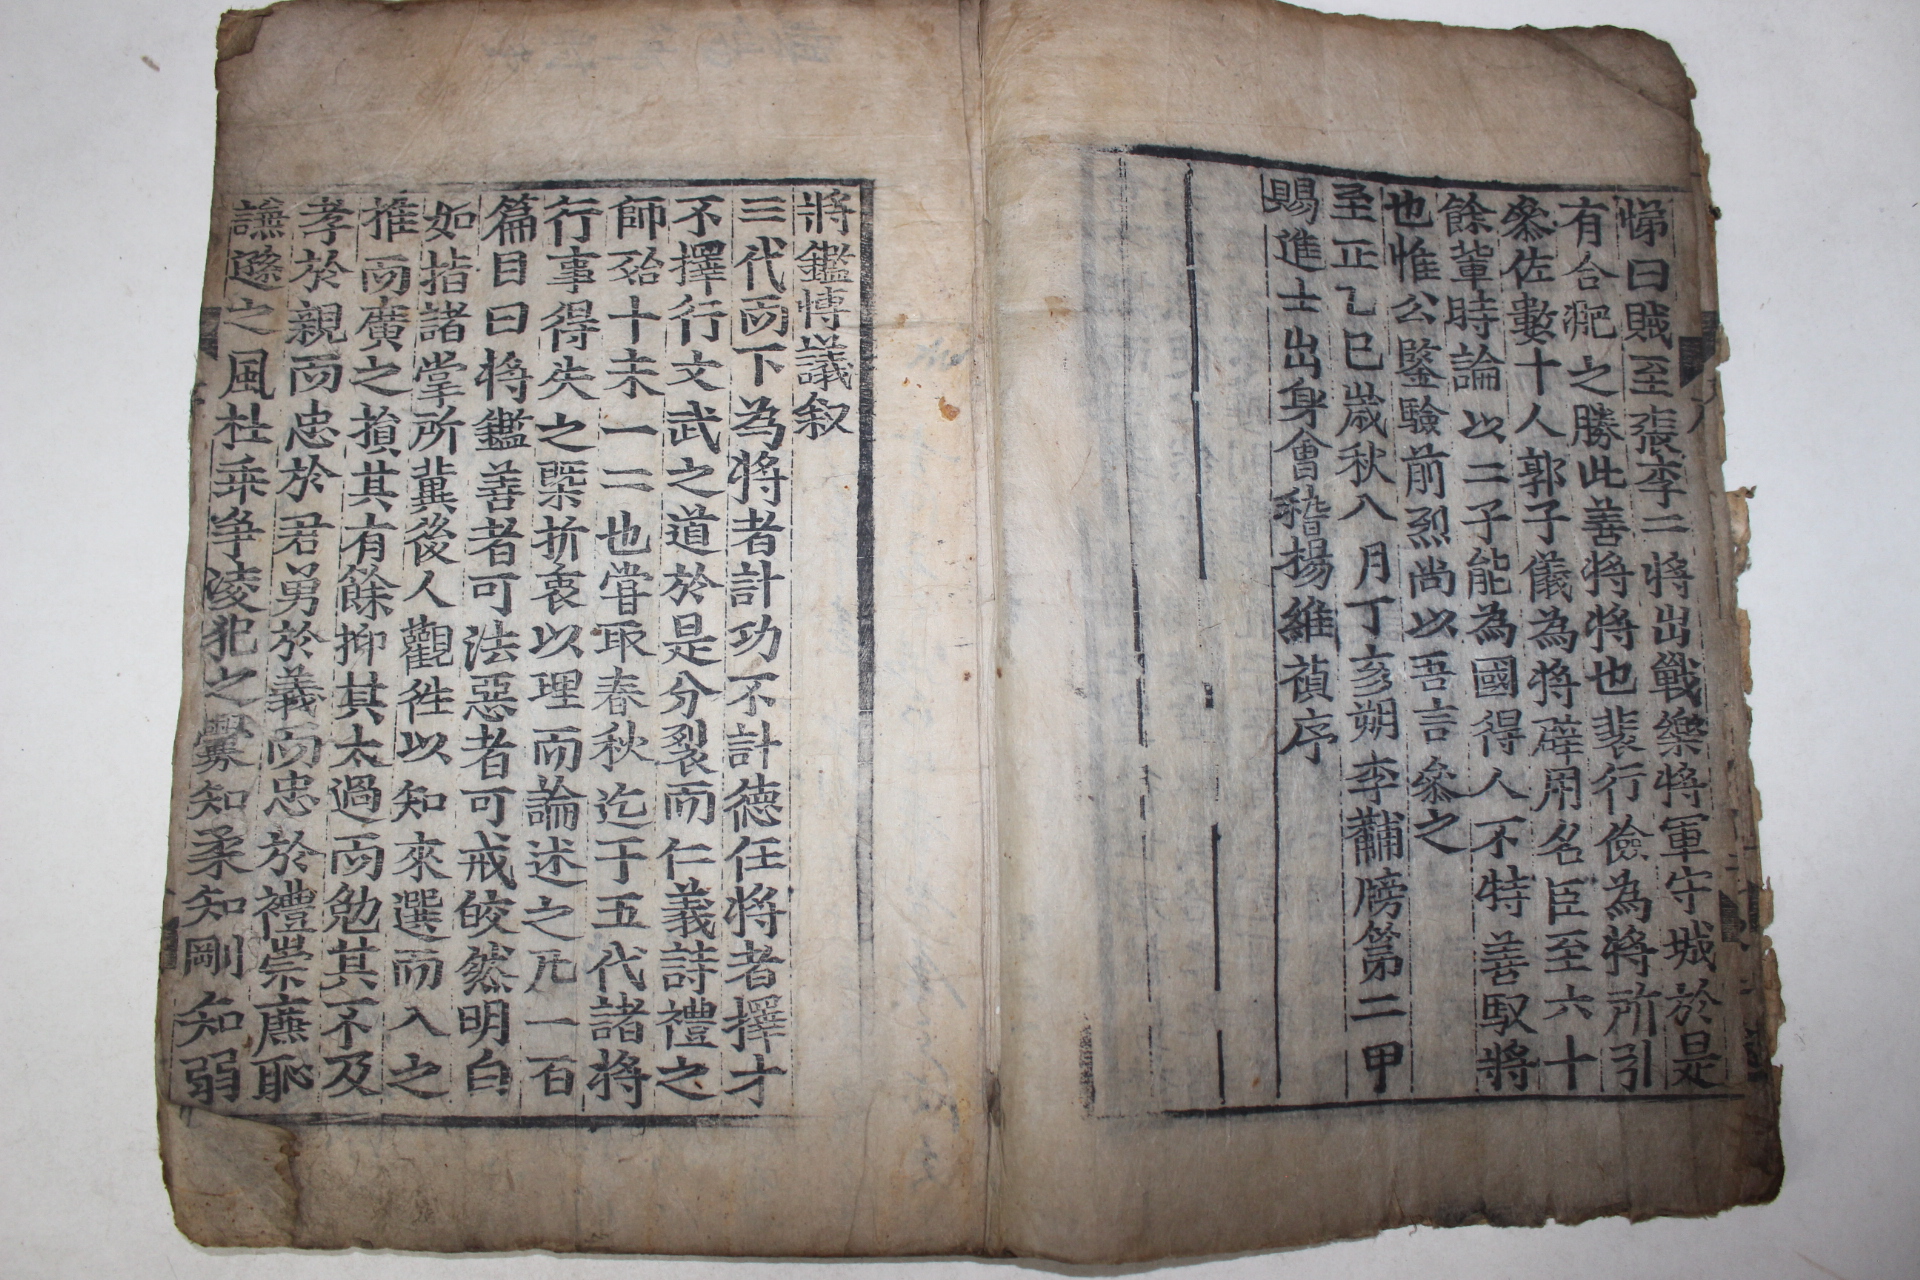 悌曰賊至張李二將出戰樂將軍守城於是
有合淝之勝此善將將也裴行儉為將所引
叅佐數十人郭子儀為將辟用名臣至六十
餘軰時論以二子能為國得人不特善馭將
也惟公鑒驗前烈尚以吾言叅之
至正乙巳歲秋八月丁亥朔李黼牓第二甲
賜進士出身會稽楊維禎序
將鑑愽議叙
三代而下為將者計功不計德任將者擇才
不擇行文武之道於是分裂而仁義詩禮之
師殆十未一二也嘗取春秋迄于五代諸將
行事得失之槩折衷以理而論述之凡一百
篇目曰將鑑善者可法惡者可戒皎然明白
如指諸掌所冀後人觀徃以知來選而入之
推而廣之損其有餘抑其太過而勉其不及
孝於親而忠於君勇於義而忠於禮崇廉恥
謙遜之風杜乘爭凌犯之釁知柔知剛知弱